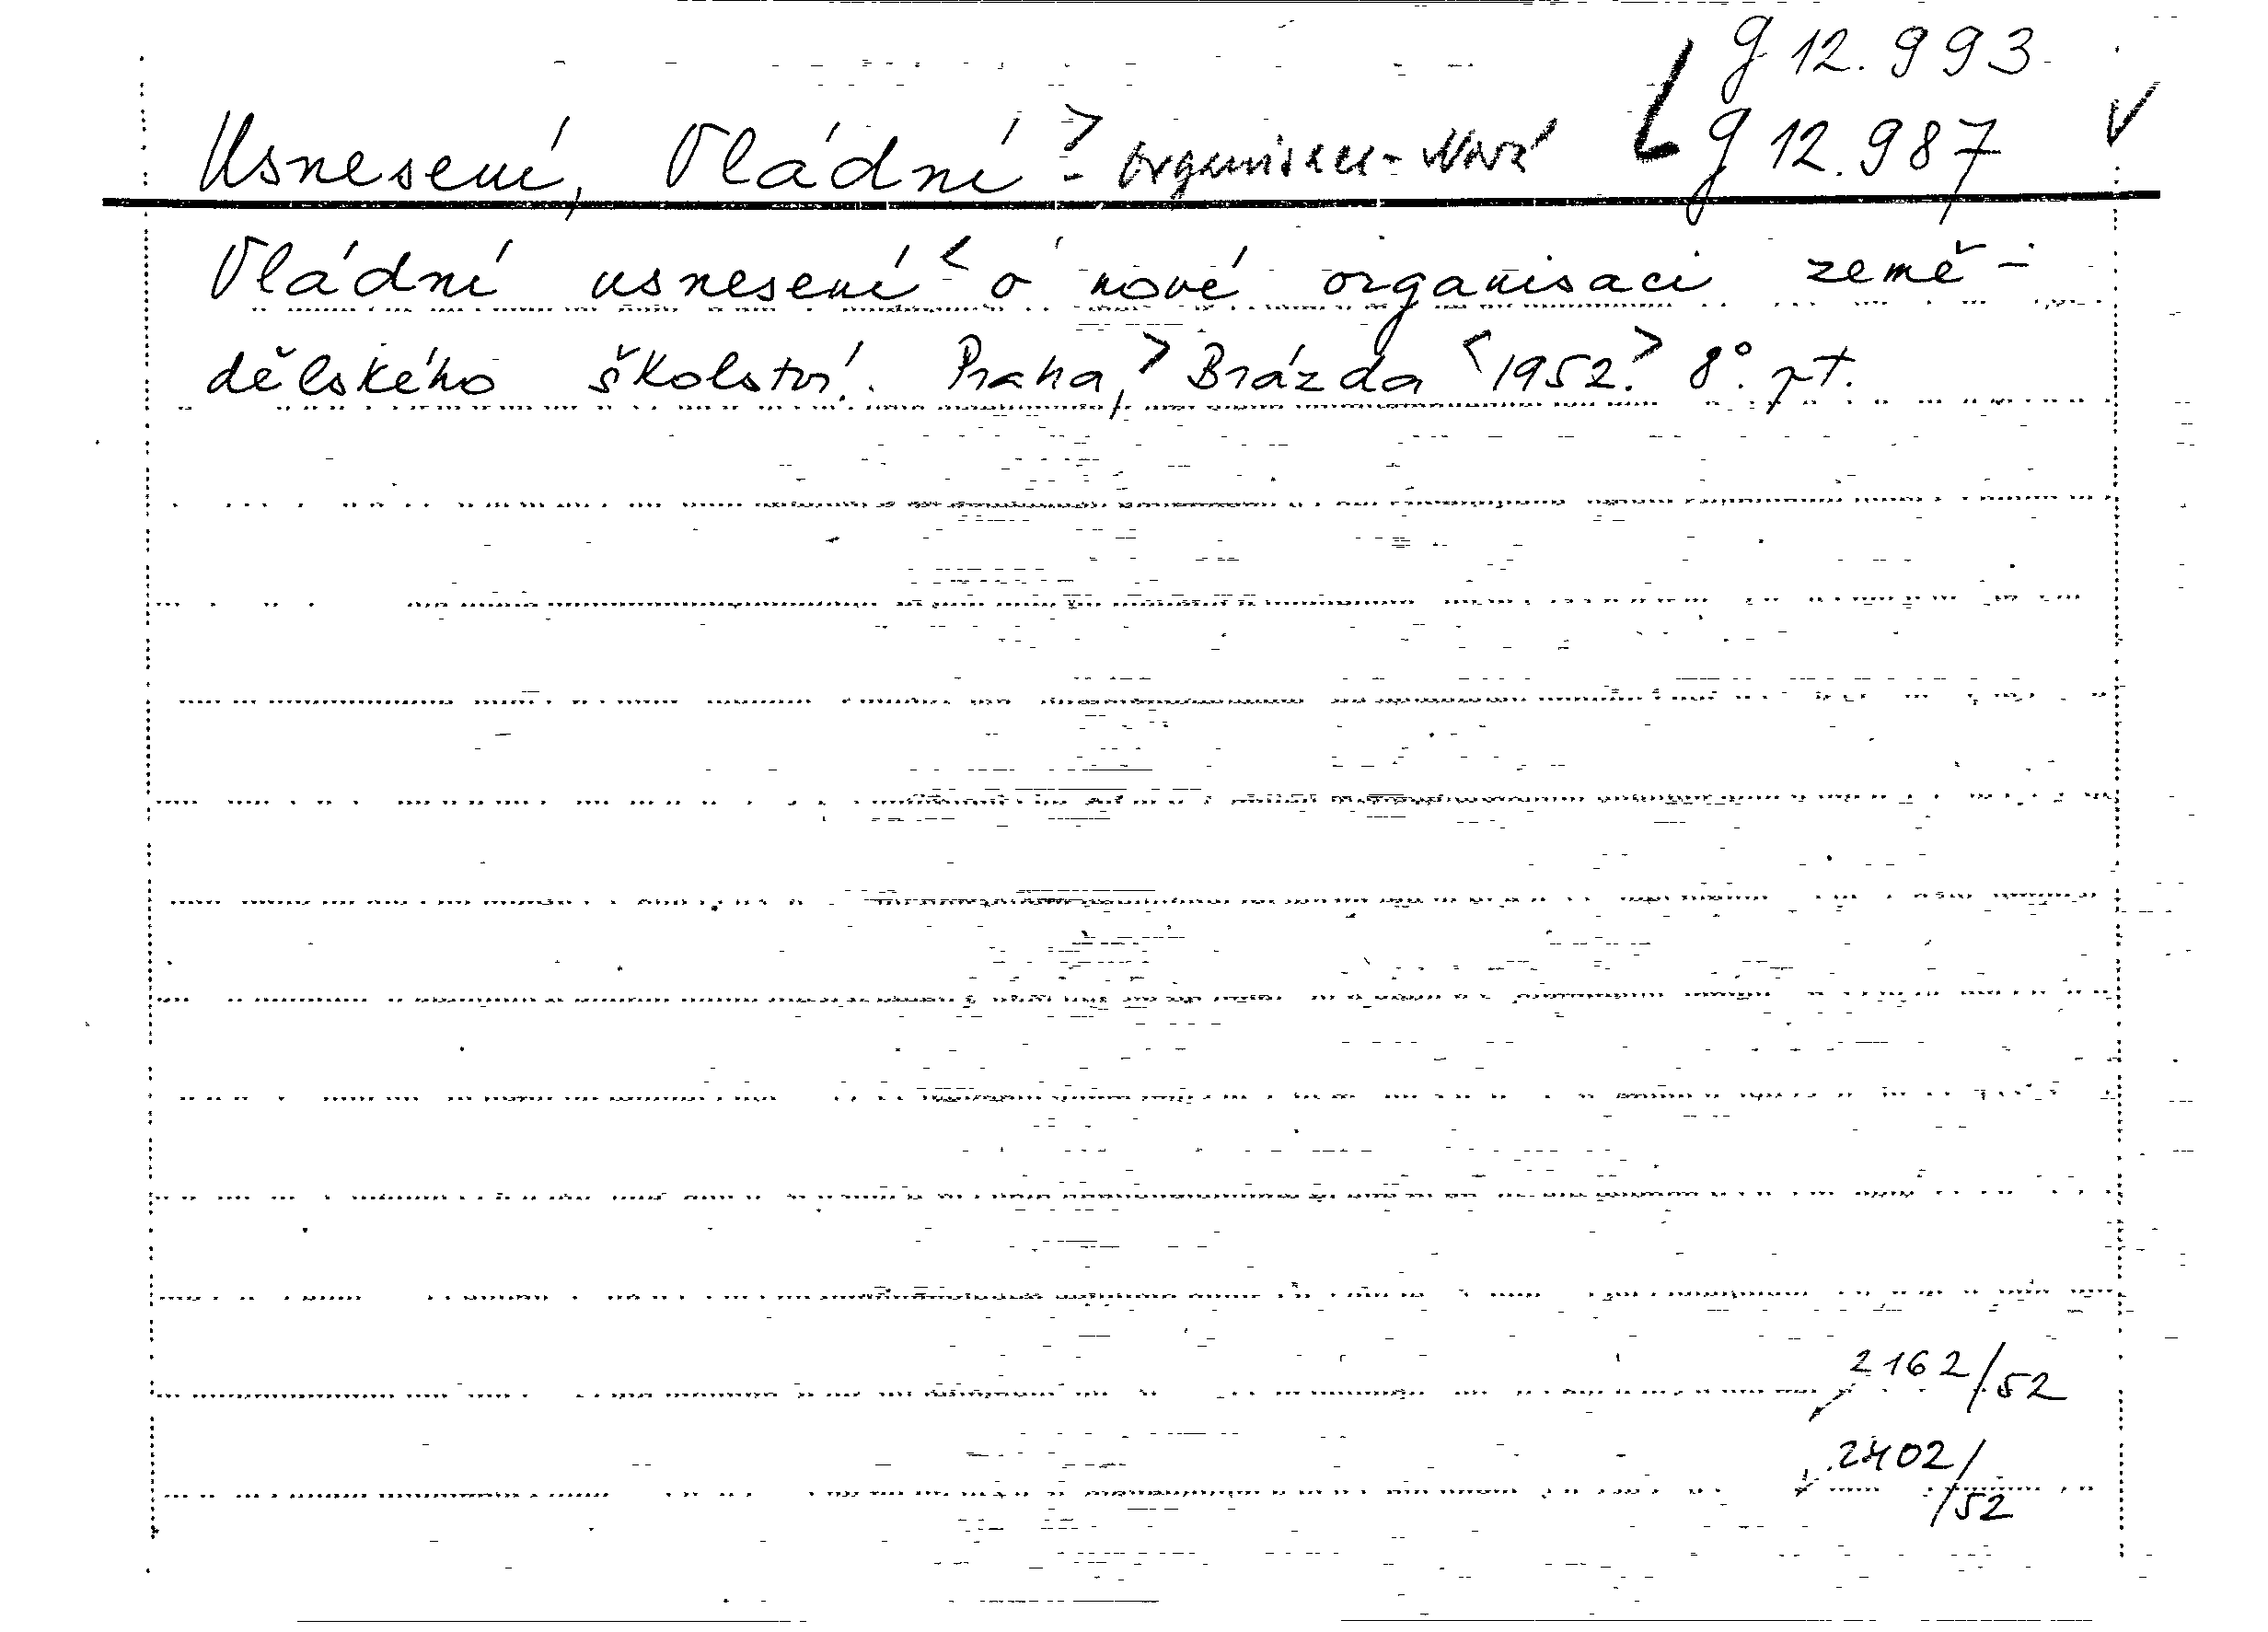 g 12.993
Usnesení, Vládní - organisace - Nová g 12.987
Vládní usnesení o nové organisaci země-
dělského školství. Praha, Brázda 1952. 8°. pt.
2162/52
2402/
/52